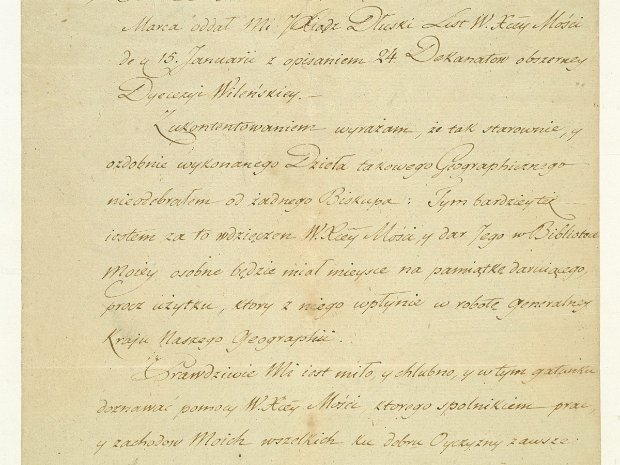 Marca oddał Mi Xiądz Dłuski List W. Xcéy Mości
de 15. Januarii z opisaniem 24 Dekanatow obszerney
Dyecezyi Wileńskiey.—
Z ukontentowaniem wyrażam, że tak starownie, y
ozdobnie wykonanego Dzieła takowego Geographicznego
nieodebrałem od żadnego Biskupa: Tym bardziey też
iestem za to wdzięczen W. Xcéy Mości, y dar Jego w Bibliotece
Moiey osobne będzie miał mieysce na pamiątkę daruiącego,
procz użytku, ktory z niego wpłynie w robotę generalney
Kraju Naszego Geographii.
Prawdziwie Mi iest miło, y chlubno, y w tym gatunku
doznawać pomocy W. Xcéy Mości, ktorego spolnikiem prac,
y zachodow Moich wszelkich ku dobru Oyczyzny zawsze